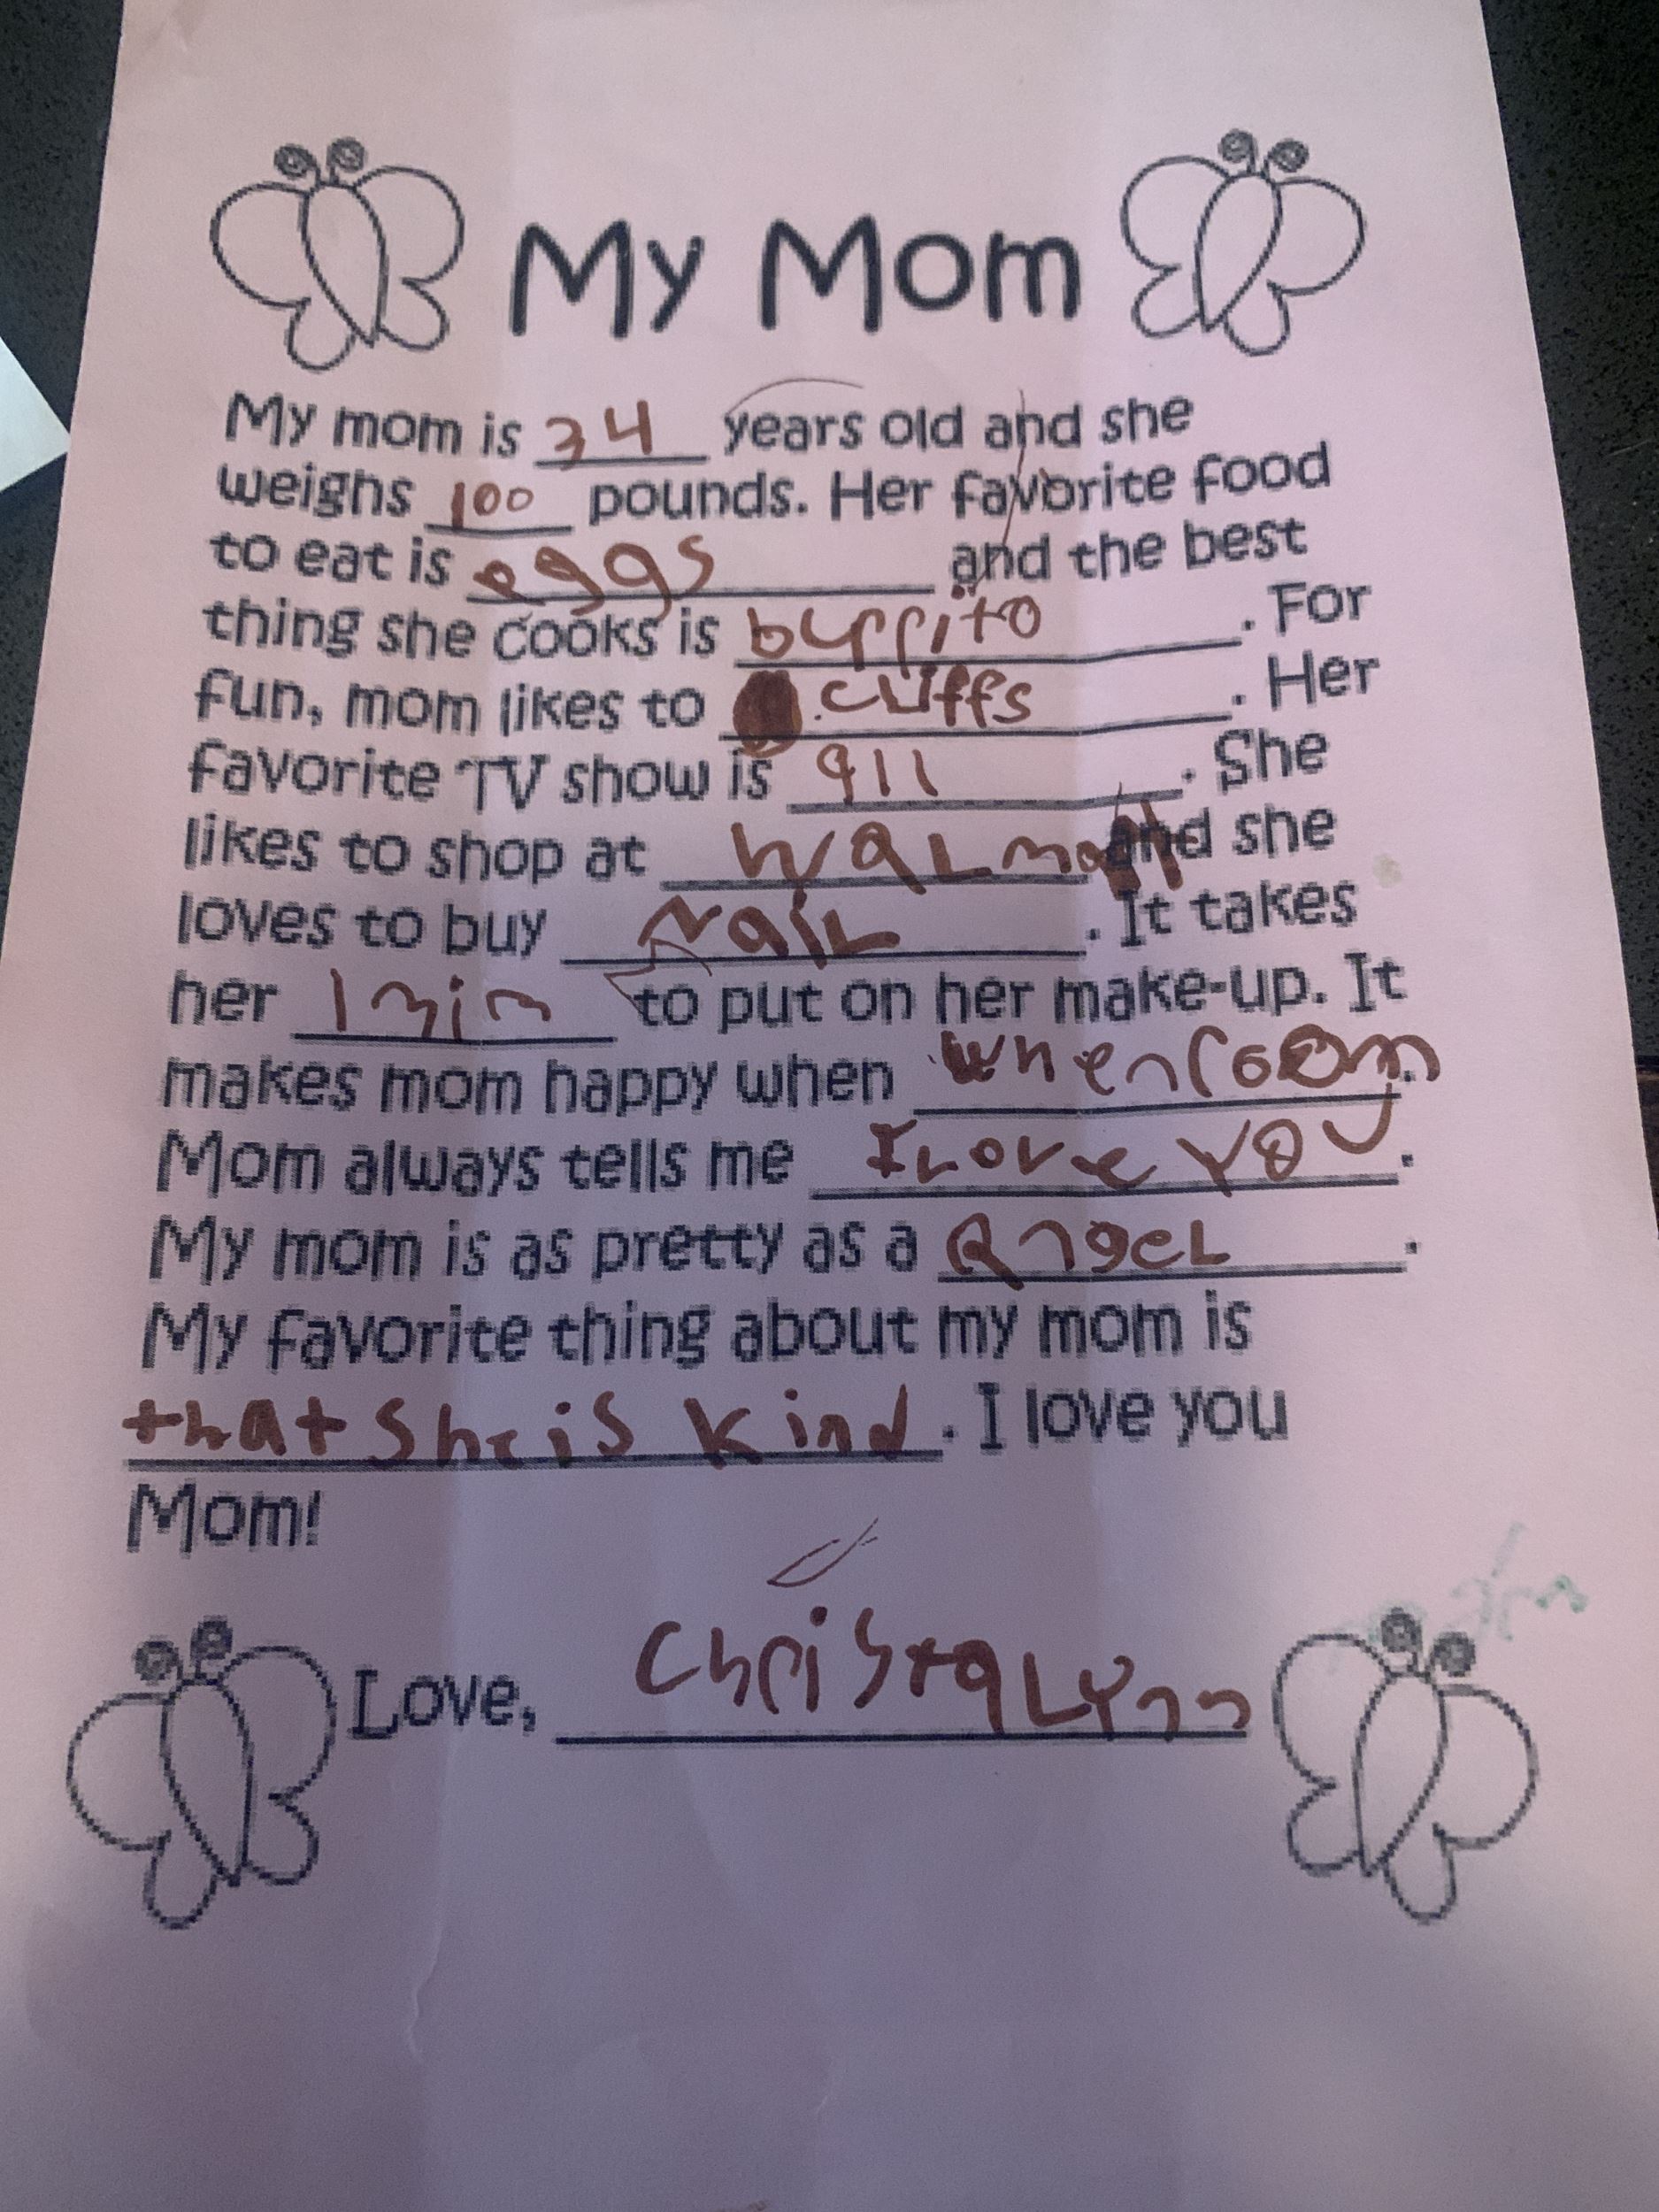 My Mom
My mom is 34 years old and she
weighs 100 pounds. Her favorite food
to eat is eggs and the best
thing she cooks is burrito. For
fun, mom likes to cliffs. Her
favorite TV show is 911. She
likes to shop at walmart and she
loves to buy nail. It takes
her 1 min to put on her make-up. It
makes mom happy when when room.
Mom always tells me I Love you.
My mom is as pretty as a angel.
My favorite thing about my mom is
that she is kind. I love you
Mom!
Love, Christalynn